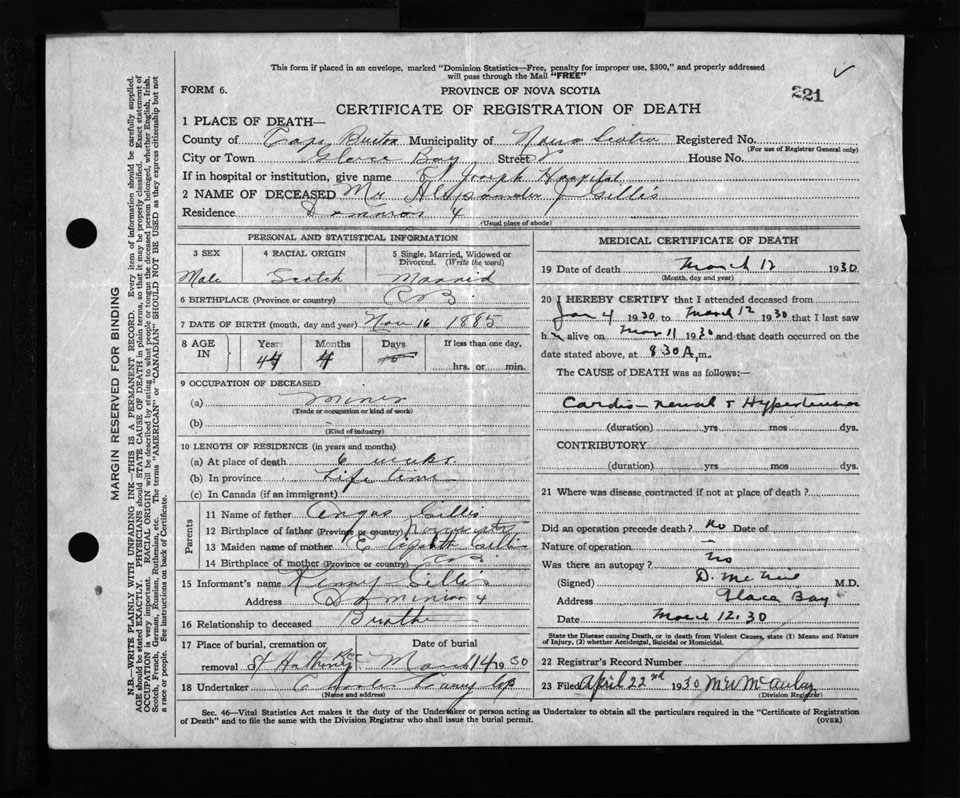 This form if placed in an envelope, marked "Dominion Statistics—Free, penalty for improper use, $300," and properly addressed
will pass through the Mail "FREE"
FORM 6. PROVINCE OF NOVA SCOTIA 221
CERTIFICATE OF REGISTRATION OF DEATH
1 PLACE OF DEATH—
County of Cape Breton Municipality of Nova Scotia Registered No.
(For use of Registrar General only)
City or Town Glace Bay Street House No.
If in hospital or institution, give name St Joseph Hospital
2 NAME OF DECEASED Mr Alexander J Gillis
Residence Dominion 4
(Usual place of abode)
PERSONAL AND STATISTICAL INFORMATION
3 SEX 4 RACIAL ORIGIN 5 Single, Married, Widowed or
Divorced. (Write the word)
Male Scotch Married
6 BIRTHPLACE (Province or country) C B
7 DATE OF BIRTH (month, day and year) Nov 16 1885
8 AGE IN Years Months Days If less than one day,
44 4 hrs. or min.
9 OCCUPATION OF DECEASED
(a) Miner
(Trade or occupation or kind of work)
(b)
(Kind of industry)
10 LENGTH OF RESIDENCE (in years and months)
(a) At place of death 6 weeks.
(b) In province Life time
(c) In Canada (if an immigrant)
Parents
11 Name of father Angus Gillis
12 Birthplace of father (Province or country)
13 Maiden name of mother Gillis
14 Birthplace of mother (Province or country) C B.
15 Informant's name Gillis
Address Dominion 4
16 Relationship to deceased Brother
17 Place of burial, cremation or Date of burial
removal St Anthony March 14 1930
18 Undertaker Curry
(Name and address)
MEDICAL CERTIFICATE OF DEATH
19 Date of death March 12 1930
(Month, day and year)
20 I HEREBY CERTIFY that I attended deceased from
Jan 4 1930 to March 12 1930 that I last saw
h alive on Mar 11 1930 and that death occurred on the
date stated above, at 8 30 A.m.
The CAUSE of DEATH was as follows:—
Cardio-renal & Hypertension
(duration) yrs mos dys.
CONTRIBUTORY
(duration) yrs mos dys.
21 Where was disease contracted if not at place of death?
Did an operation precede death? No Date of
Nature of operation
Was there an autopsy? No
(Signed) D. McNeil M.D.
Address Glace Bay
Date March 12.30
State the Disease causing Death, or in death from Violent Causes, state (1) Means and Nature
of Injury, (2) whether Accidental, Suicidal or Homicidal.
22 Registrar's Record Number
23 Filed April 22nd 1930 McAulay
(Division Registrar)
Sec. 46—Vital Statistics Act makes it the duty of the Undertaker or person acting as Undertaker to obtain all the particulars required in the "Certificate of Registration
of Death" and to file the same with the Division Registrar who shall issue the burial permit. (OVER)
MARGIN RESERVED FOR BINDING
N.B.—WRITE PLAINLY WITH UNFADING INK—THIS IS A PERMANENT RECORD. Every item of information should be carefully supplied.
AGE should be stated EXACTLY. PHYSICIANS should STATE CAUSE OF DEATH in plain terms, so that it may be properly classified. Exact statement of
OCCUPATION is very important. RACIAL ORIGIN will be described by stating to what people or tongue the deceased person belonged, whether English, Irish,
Scotch, French, German, Russian, Ruthenian, etc. The terms "AMERICAN" or "CANADIAN" SHOULD NOT BE USED as they express citizenship but not
a race or people. See instructions on back of Certificate.